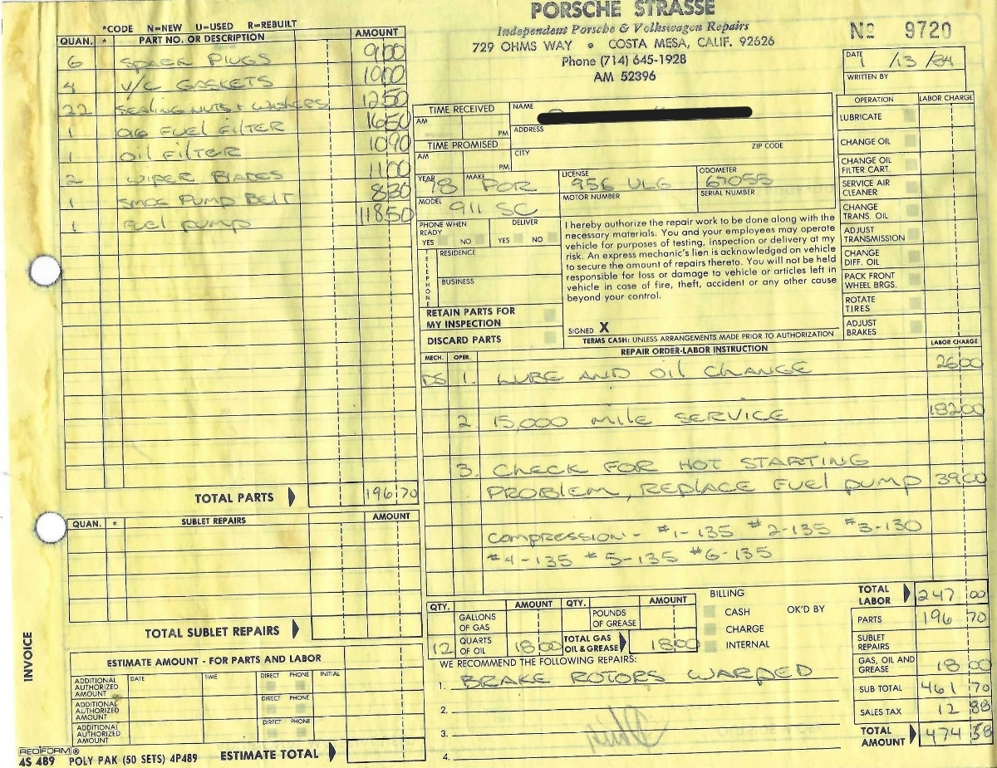 PORSCHE STRASSE
Independent Porsche & Volkswagen Repairs
729 OHMS WAY • COSTA MESA, CALIF. 92626
Phone (714) 645-1928
AM 52396
No 9720
DATE 1 /13 /84
WRITTEN BY
*CODE N=NEW U=USED R=REBUILT
QUAN. * PART NO. OR DESCRIPTION AMOUNT
6 SPARK PLUGS 9 00
4 V/C GASKETS 10 00
22 SEALING NUTS + WASHERS 12 50
1 FUEL FILTER 16 50
1 OIL FILTER 10 90
2 WIPER BLADES 11 00
1 SMOG PUMP BELT 8 30
1 FUEL PUMP 118 50
TOTAL PARTS 196 70
QUAN. * SUBLET REPAIRS AMOUNT
TOTAL SUBLET REPAIRS
ESTIMATE AMOUNT - FOR PARTS AND LABOR
ADDITIONAL AUTHORIZED AMOUNT DATE TIME DIRECT PHONE INITIAL
ADDITIONAL AUTHORIZED AMOUNT DIRECT PHONE
ADDITIONAL AUTHORIZED AMOUNT DIRECT PHONE
ESTIMATE TOTAL
INVOICE
REDIFORM®
4S 489 POLY PAK (50 SETS) 4P489
TIME RECEIVED
AM PM
TIME PROMISED
AM PM
NAME
ADDRESS
CITY ZIP CODE
YEAR 78 MAKE POR LICENSE 956 ULG ODOMETER 67055
MODEL 911 SC MOTOR NUMBER SERIAL NUMBER
PHONE WHEN READY YES NO
DELIVER YES NO
TELEPHONE
RESIDENCE
BUSINESS
RETAIN PARTS FOR MY INSPECTION
DISCARD PARTS
I hereby authorize the repair work to be done along with the
necessary materials. You and your employees may operate
vehicle for purposes of testing, inspection or delivery at my
risk. An express mechanic's lien is acknowledged on vehicle
to secure the amount of repairs thereto. You will not be held
responsible for loss or damage to vehicle or articles left in
vehicle in case of fire, theft, accident or any other cause
beyond your control.
SIGNED X
TERMS CASH: UNLESS ARRANGEMENTS MADE PRIOR TO AUTHORIZATION
OPERATION LABOR CHARGE
LUBRICATE
CHANGE OIL
CHANGE OIL FILTER CART.
SERVICE AIR CLEANER
CHANGE TRANS. OIL
ADJUST TRANSMISSION
CHANGE DIFF. OIL
PACK FRONT WHEEL BRGS.
ROTATE TIRES
ADJUST BRAKES
MECH. OPER. REPAIR ORDER-LABOR INSTRUCTION LABOR CHARGE
DS 1. LUBE AND OIL CHANGE 26 00
2 15,000 MILE SERVICE 182 00
3. CHECK FOR HOT STARTING
PROBLEM, REPLACE FUEL PUMP 39 00
COMPRESSION - #1-135 #2-135 #3-130
#4-135 #5-135 #6-135
QTY. AMOUNT QTY. AMOUNT
GALLONS OF GAS POUNDS OF GREASE
12 QUARTS OF OIL 18 00 TOTAL GAS OIL & GREASE 18 00
BILLING
CASH OK'D BY
CHARGE
INTERNAL
WE RECOMMEND THE FOLLOWING REPAIRS:
1. BRAKE ROTORS WARPED
2.
3.
4.
TOTAL LABOR 247 00
PARTS 196 70
SUBLET REPAIRS
GAS, OIL AND GREASE 18 00
SUB TOTAL 461 70
SALES TAX 12 88
TOTAL AMOUNT 474 58